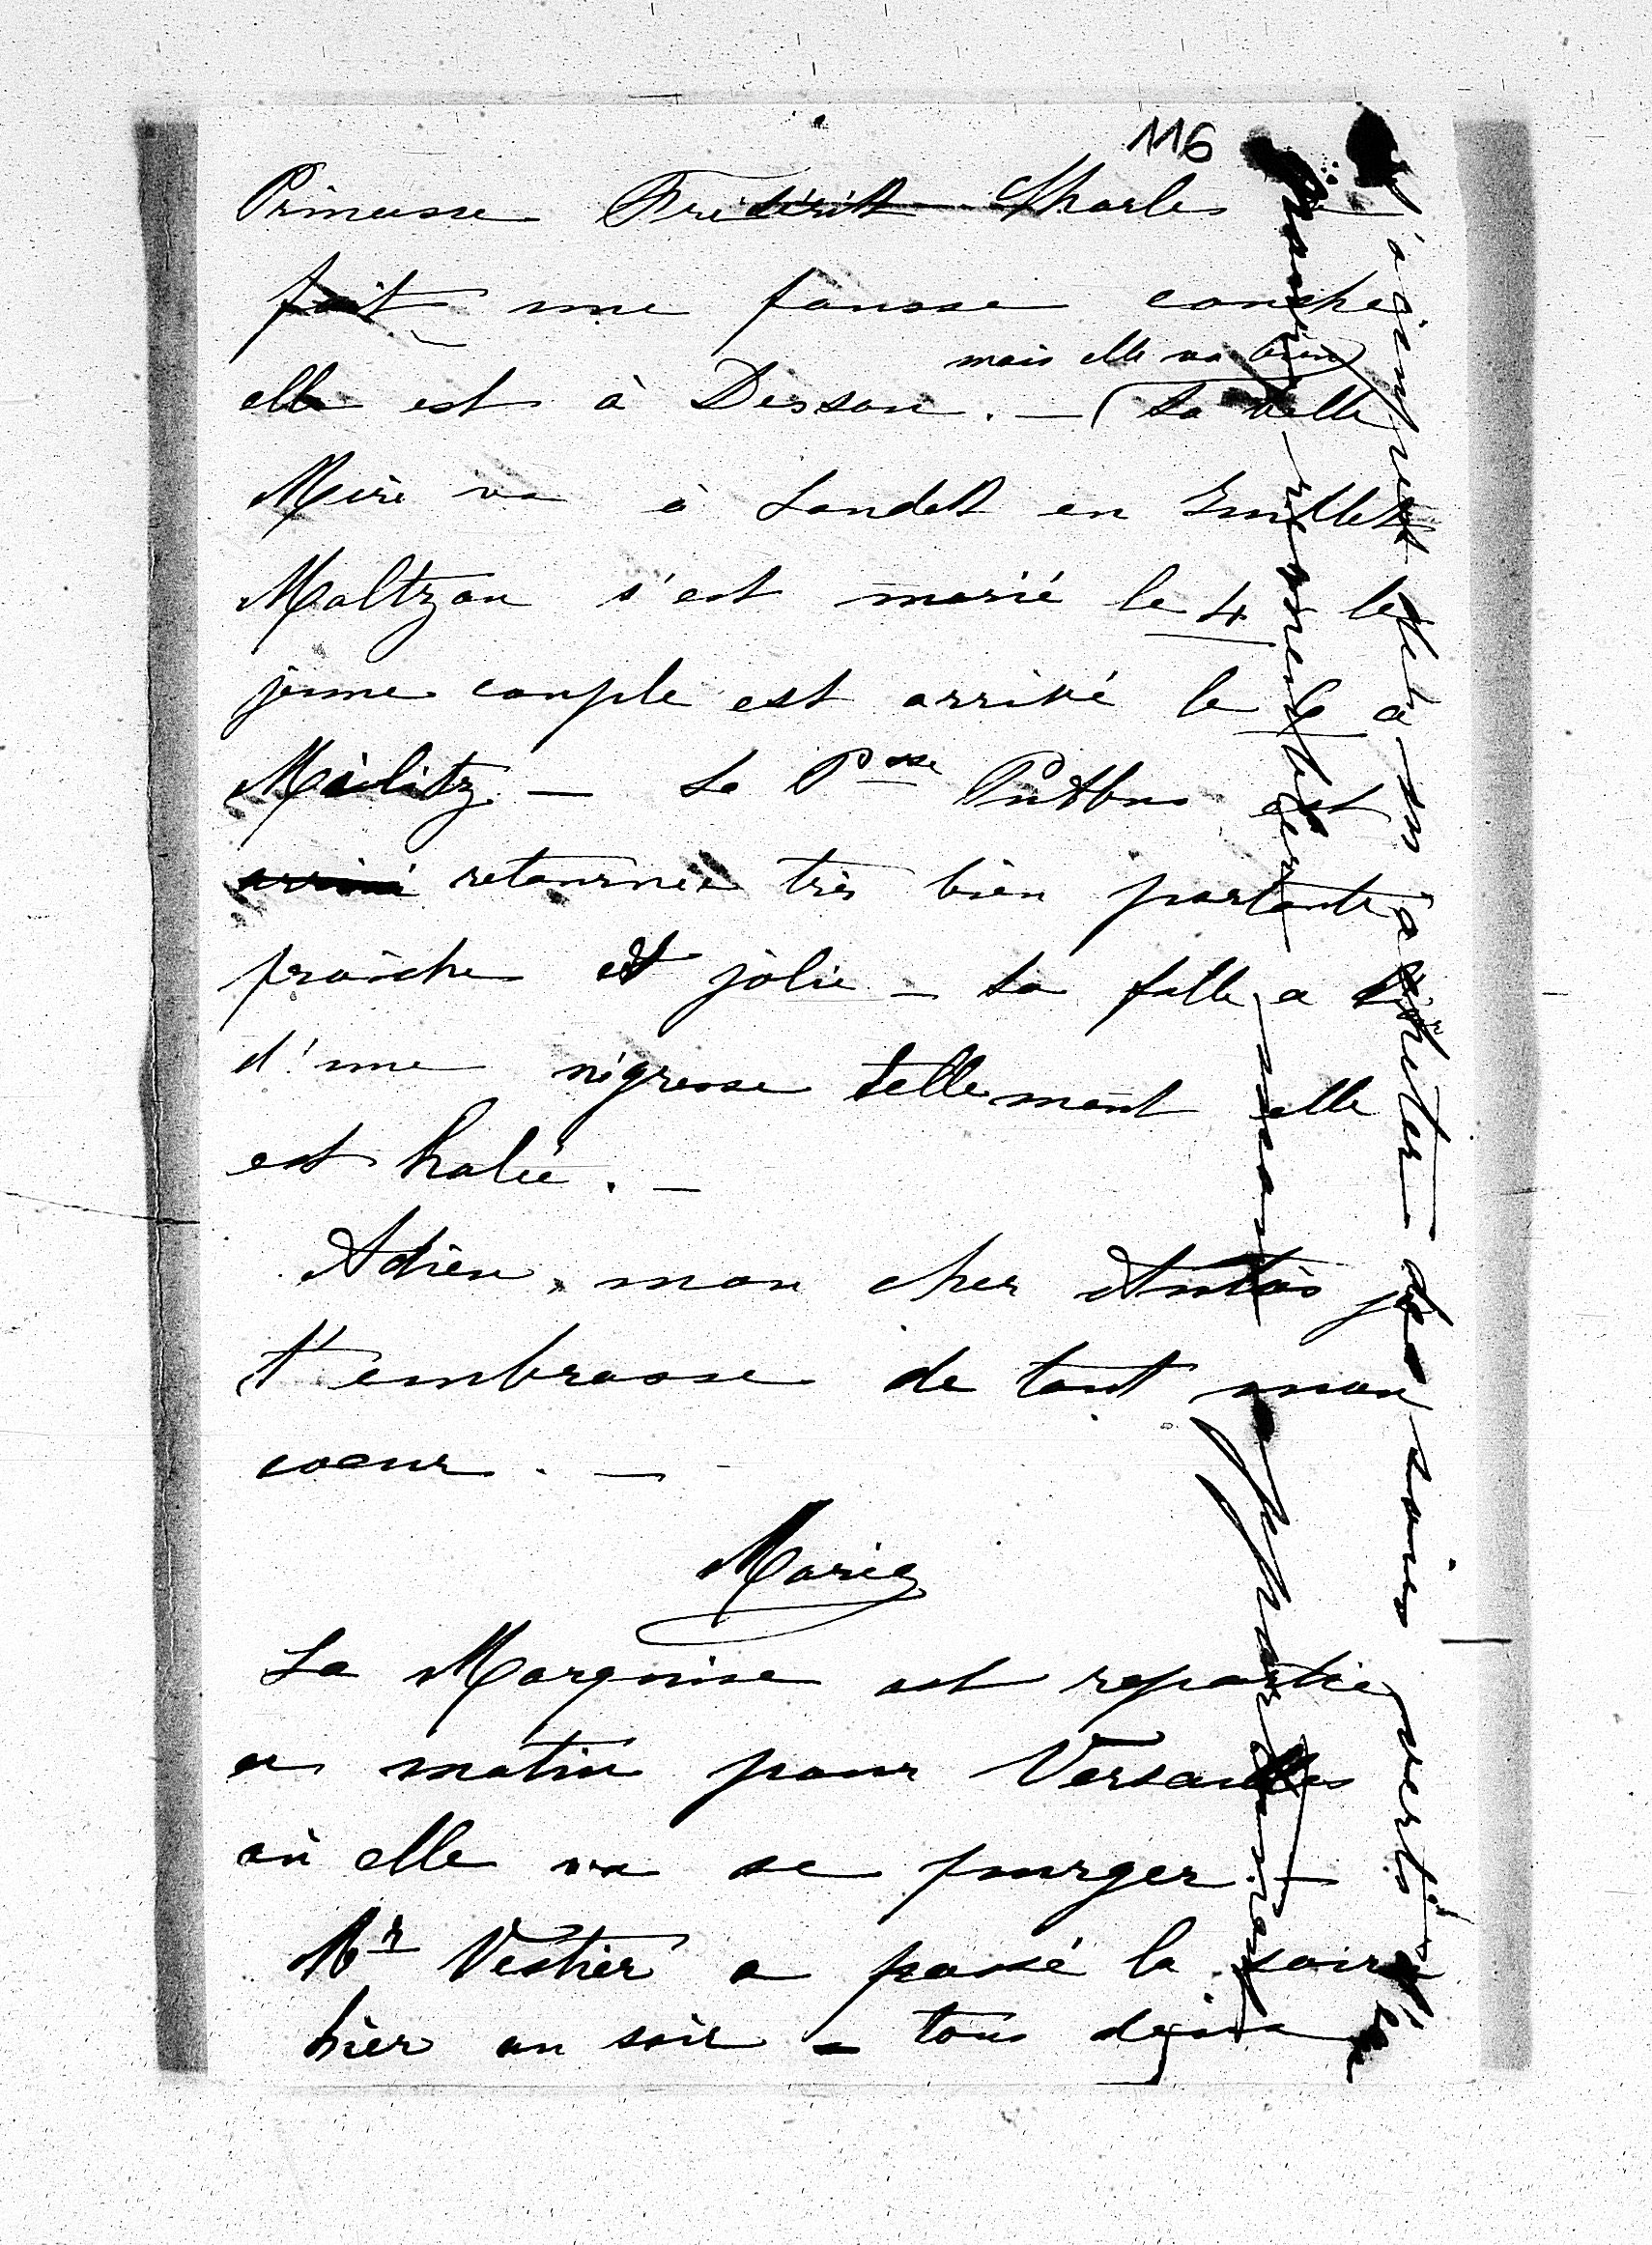 116
Princesse Frédérik Charles a
fait une fausse couche
mais elle va bien
elle est à Dessau. — (Sa belle
Mère va à Landek en Juillet
Maltzan s'est marié le 4 le
jeune couple est arrivé le 6 à
Militz — La Psse Putbus est
arrivé retournée très bien portante
fraîche et jolie — sa fille a l'air
d'une négresse tellement elle
est halée. —
Adieu, mon cher Antoin je
t'embrasse de tout mon
coeur. —
Marie
La Marquise est repartie
ce matin pour Versailles
où elle va se purger —
Mr Vestier a passé la soirée
hier au soir — tous
à acheter des